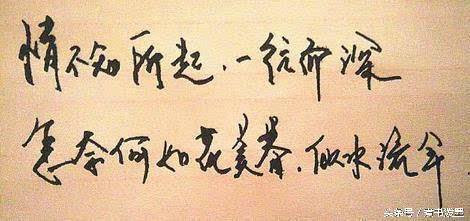 情不知所起.一往而深
怎奈何如花美眷.似水流年
头条号/